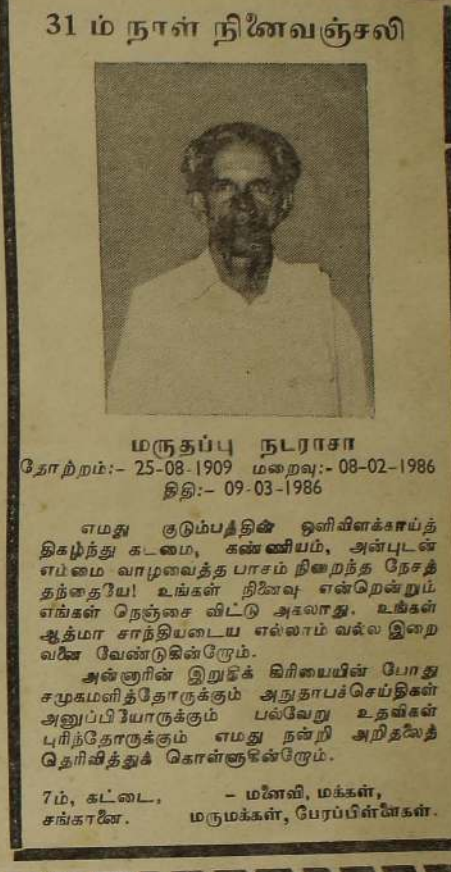 31 ம் நாள் நினைவஞ்சலி
மருதப்பு நடராசா
தோற்றம்:- 25-08-1909 மறைவு:- 08-02-1986
திதி:- 09-03-1986
எமது குடும்பத்தின் ஒளிவிளக்காய்த்
திகழ்ந்து கடமை, கண்ணியம், அன்புடன்
எம்மை வாழவைத்த பாசம் நிறைந்த நேசத்
தந்தையே! உங்கள் நினைவு என்றென்றும்
எங்கள் நெஞ்சை விட்டு அகலாது. உங்கள்
ஆத்மா சாந்தியடைய எல்லாம் வல்ல இறை
வனை வேண்டுகின்றோம்.
அன்னாரின் இறுதிக் கிரியையின் போது
சமுகமளித்தோருக்கும் அநுதாபச்செய்திகள்
அனுப்பியோருக்கும் பல்வேறு உதவிகள்
புரிந்தோருக்கும் எமது நன்றி அறிதலைத்
தெரிவித்துக் கொள்ளுகின்றோம்.
7ம், கட்டை, - மனைவி, மக்கள்,
சங்கானை. மருமக்கள், பேரப்பிள்ளைகள்.